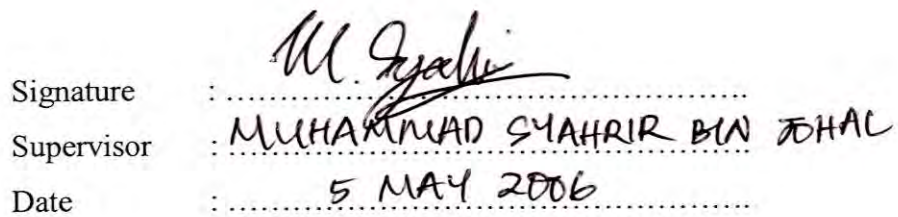 Signature : M. Syahir
Supervisor : MUHAMMAD SYAHRIR BIN JOHAL
Date : 5 MAY 2006